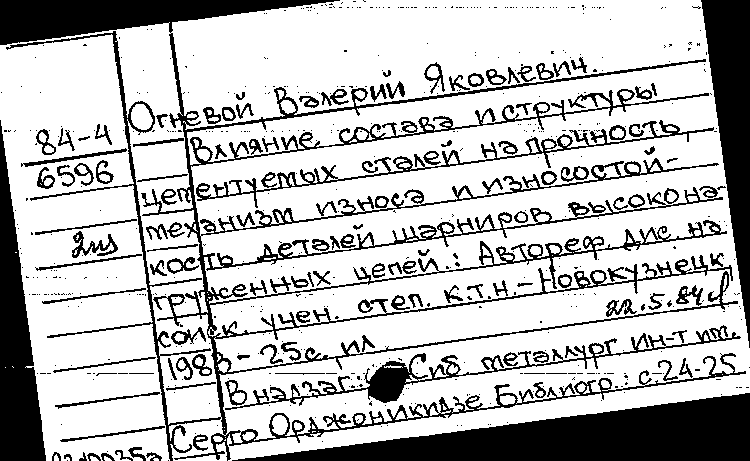 Огневой, Валерий Яковлевич.
84-4
6596
2 из
Влияние состава и структуры
цементуемых сталей на прочность,
механизм износа и износостой-
кость деталей шарниров высокона-
груженных цепей.: Автореф. дис. на
соиск. учен. степ. к.т.н. - Новокузнецк
22.5.84
1983 - 25с. ил
В надзаг.: Сиб. металлург ин-т им.
Серго Орджоникидзе Библиогр.: с.24-25